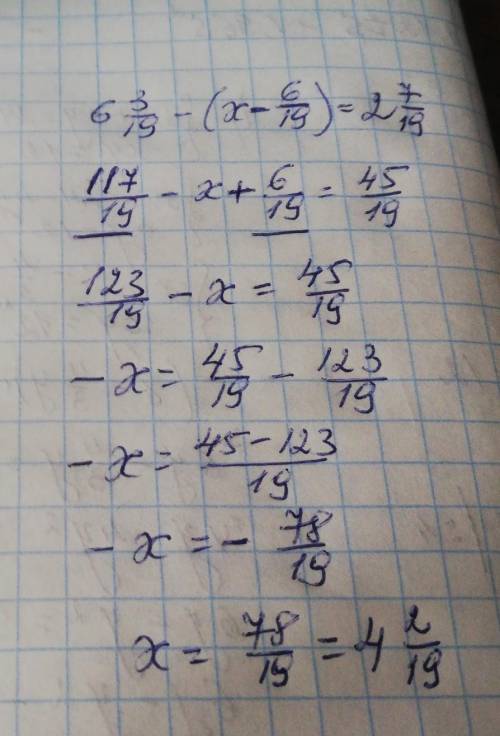 6 3/19 - (x - 6/19) = 2 7/19
117/19 - x + 6/19 = 45/19
123/19 - x = 45/19
- x = 45/19 - 123/19
- x = (45 - 123)/19
- x = - 78/19
x = 78/19 = 4 2/19